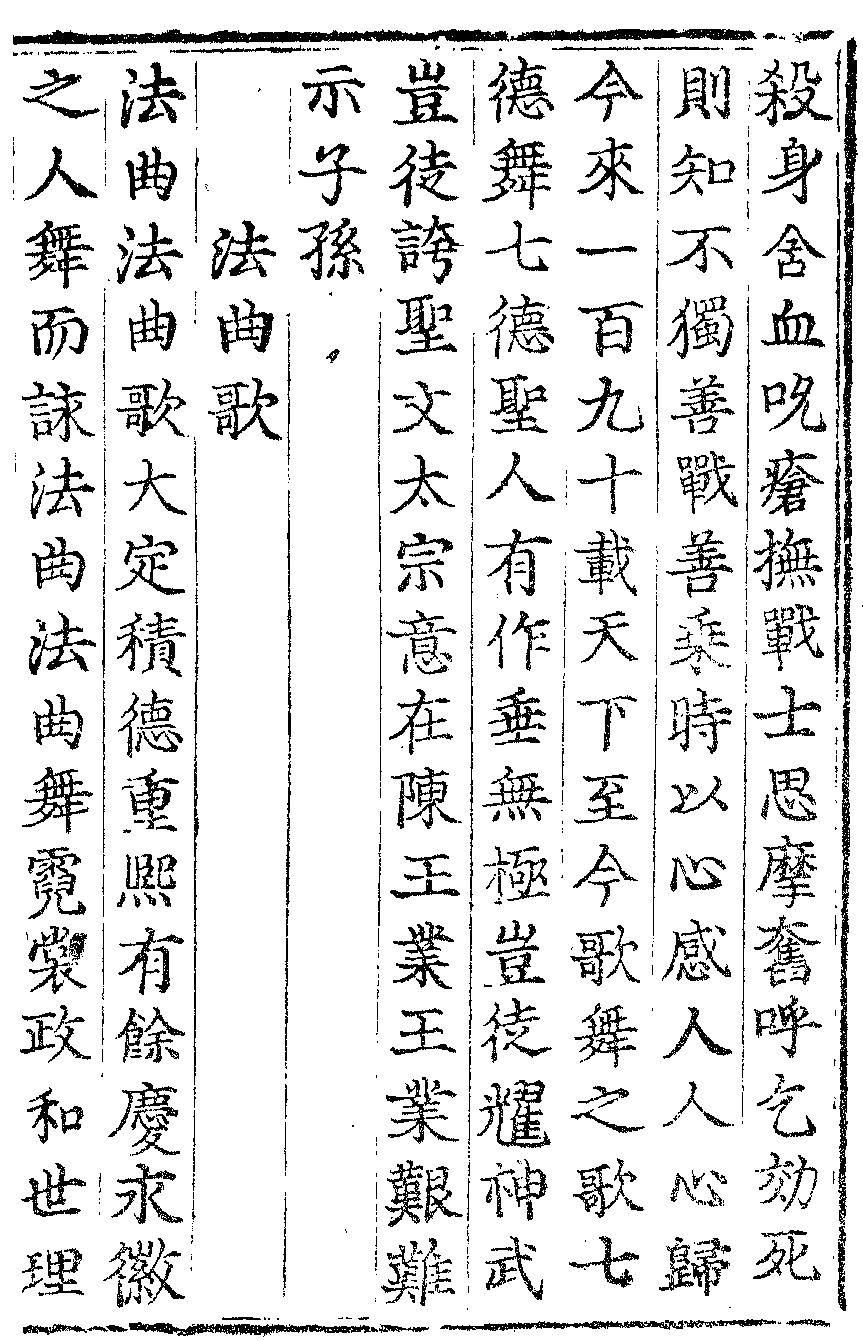 殺身含血吮瘡撫戰士思摩奮呼乞効死
則知不獨善戰善乗時以心感人人心歸
今來一百九十載天下至今歌舞之歌七
德舞七德聖人有作垂無極豈徒耀神武
豈徒誇聖文太宗意在陳王業王業艱難
示子孫
法曲歌
法曲法曲歌大定積德重熙有餘慶永徽
之人舞而詠法曲法曲舞霓裳政和世理